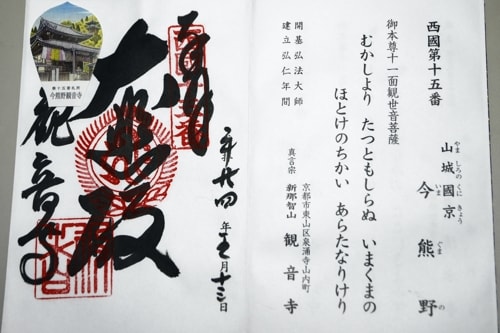 西國第十五番
山城國京 今熊野
やま しろの くに きょう いま ぐま の
御本尊十一面観世音菩薩
むかしより たつともしらぬ いまくまの
ほとけのちかい あらたなりけり
開基弘法大師
建立弘仁年間
京都市東山区泉涌寺山内町
真言宗 新那智山 観音寺
今熊野観音寺
大悲殿
観音寺
平成廿四年 月十三日